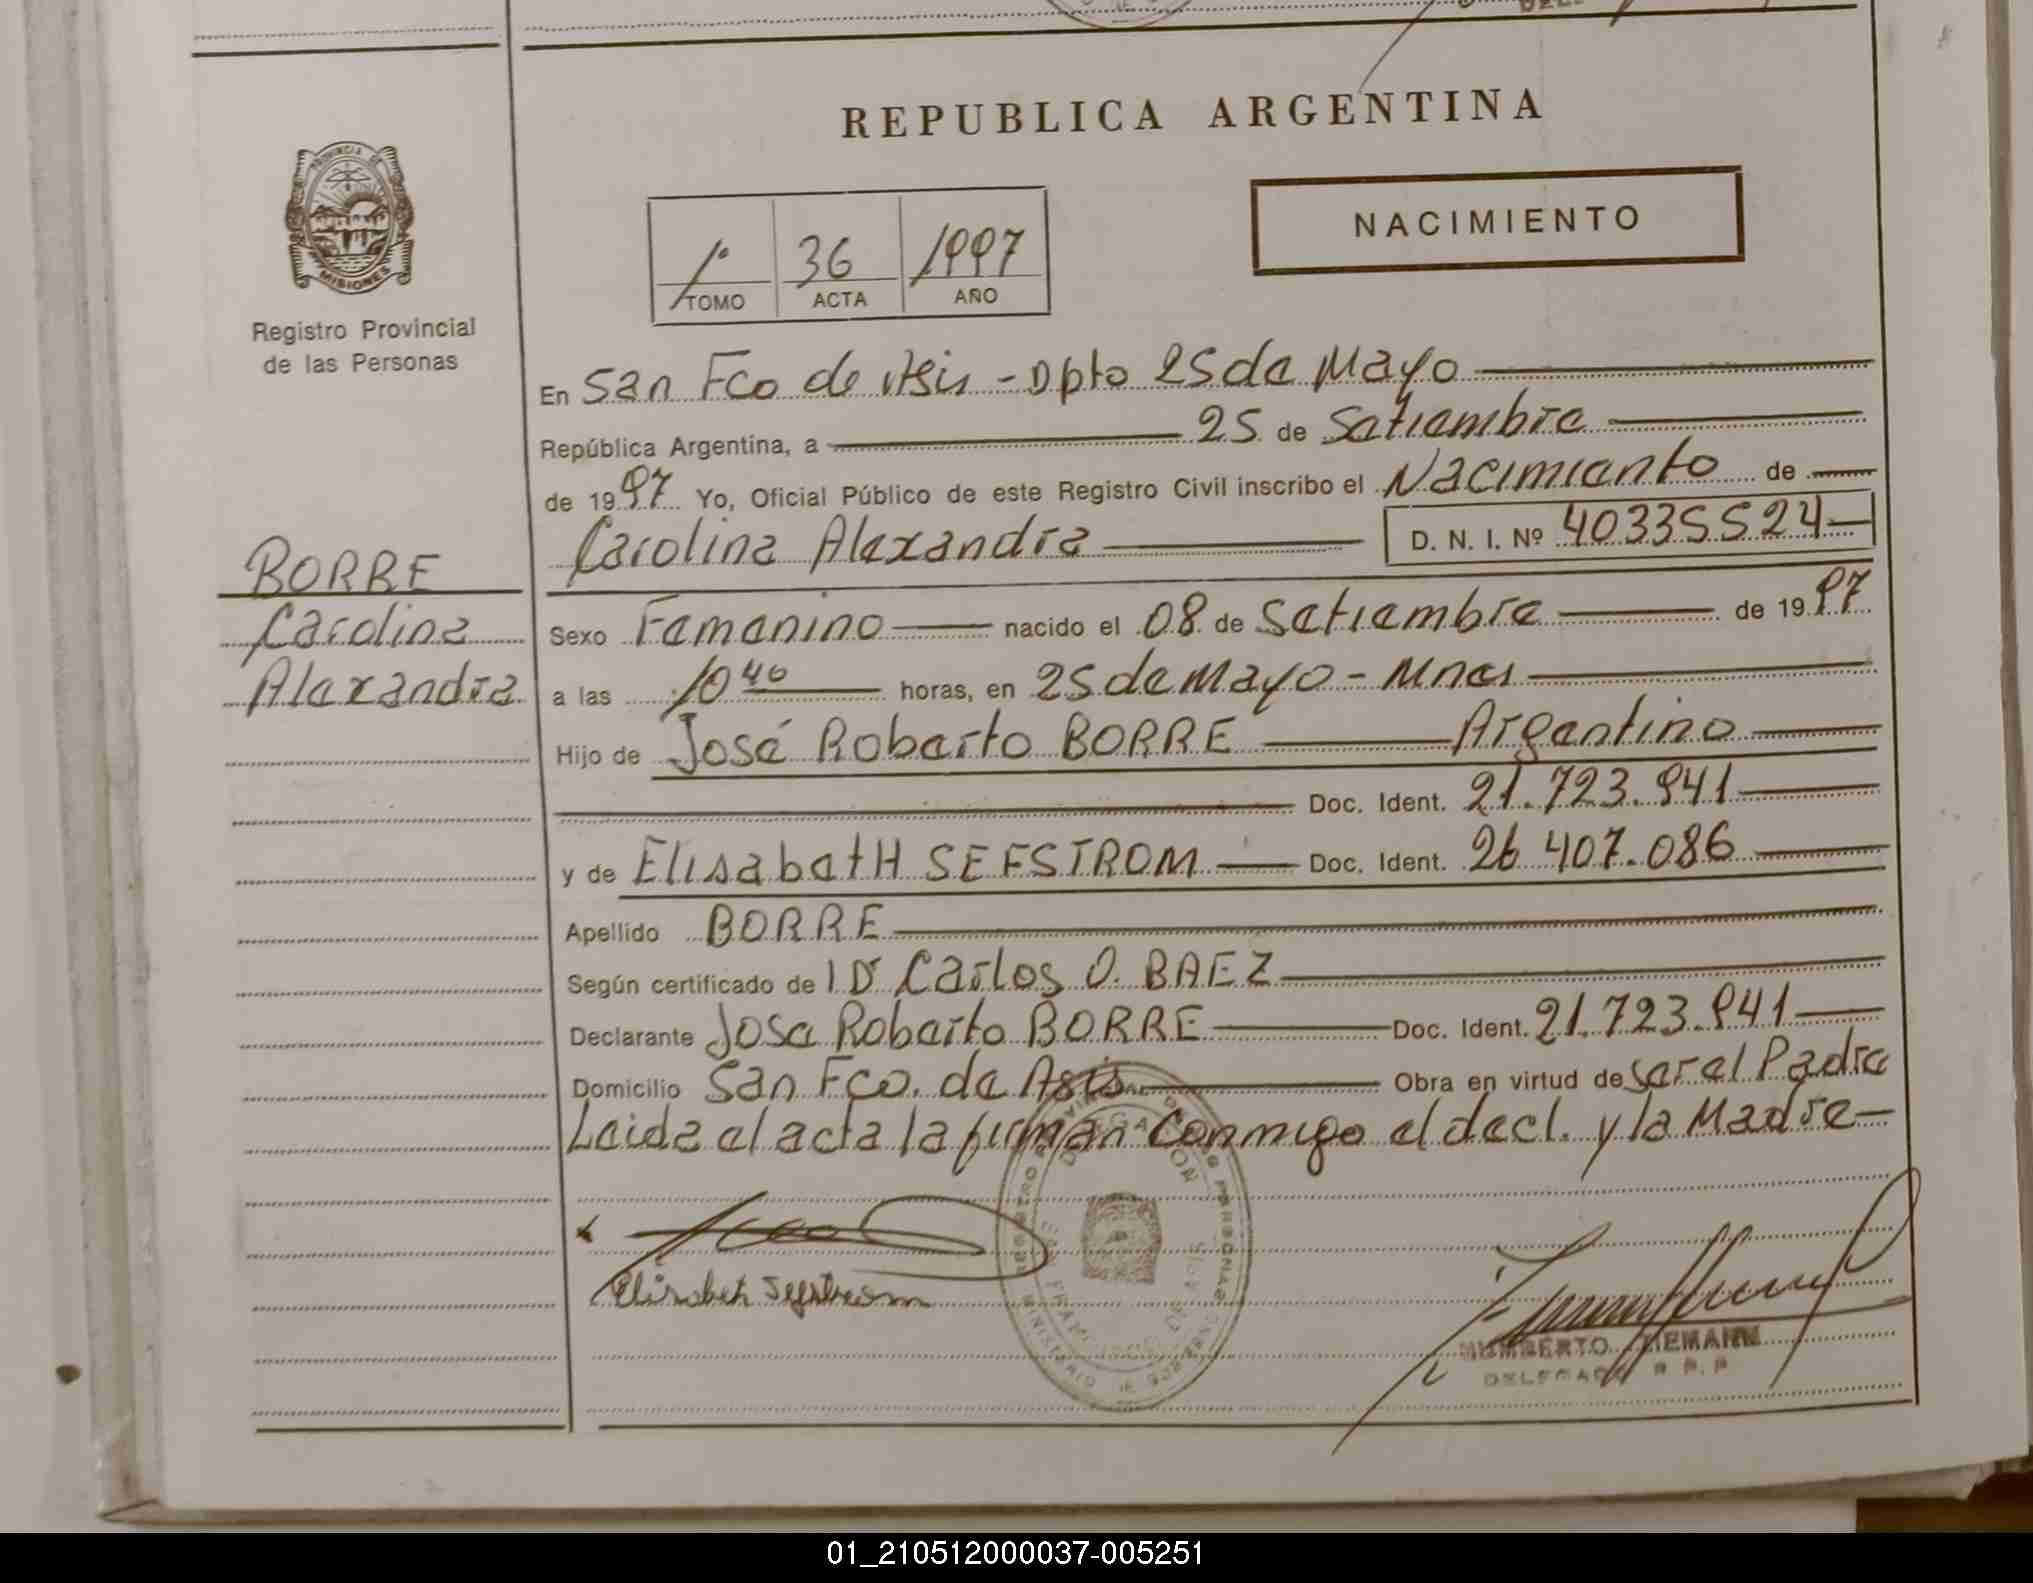 REPUBLICA ARGENTINA
PROVINCIA DE
MISIONES
Registro Provincial
de las Personas
NACIMIENTO
1º 36 1997
TOMO ACTA AÑO
En San Fco de Asis - Dpto 25 de Mayo
República Argentina, a 25 de Setiembre
de 1997 Yo, Oficial Público de este Registro Civil inscribo el Nacimiento de
Carolina Alexandra D. N. I. Nº 40335524
BORRE
Carolina
Alexandra
Sexo Femenino nacido el 08 de Setiembre de 1997
a las 10 40 horas, en 25 de Mayo - Mnes
Hijo de José Roberto BORRE Argentino
Doc. Ident. 21.723.941
y de Elisabeth SEFSTROM Doc. Ident. 26 407.086
Apellido BORRE
Según certificado de Carlos O. BAEZ
Declarante Jose Roberto BORRE Doc. Ident. 21.723.941
Domicilio San Fco. de Asis Obra en virtud de ser el Padre
Leida el acta la firman conmigo el decl. y la Madre
Elisabeth Sefstrom
DELEGACION
HUMBERTO
DELEGADO R.P.P
01_210512000037-005251